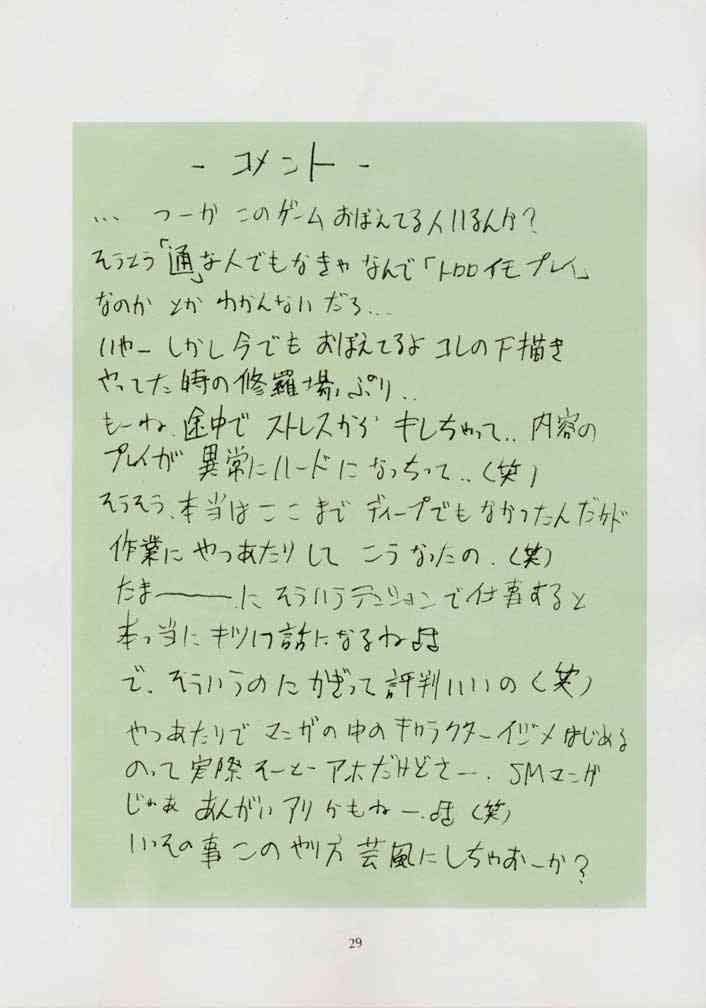 - コメント -
... つーか このゲーム おぼえてる人いるんか?
そうとう「通」な人でもなきゃ なんで「トロロイモプレイ」
なのか とか わかんないだろ...
いやー しかし 今でも おぼえてるよ コレの下描き
やってた時の修羅場っぷり..
もーね、途中で ストレスから キレちゃって.. 内容の
プレイが 異常にハードに なっちって..(笑)
そうそう、本当は ここまで ディープでもなかったんだけど
作業に やつあたりして こうなったの.(笑)
たま―――.に そういうテンションで仕事すると
本っ当に キツい話になるね♪♪
で、そういうのに かぎって 評判いいの(笑)
やつあたりで マンガの中のキャラクターイジメはじめる
のって 実際 そーとーアホだけどさー. SMマンガ
じゃぁ あんがい アリかもねー.♪♪(笑)
いっその事 このやり方 芸風にしちゃおーか?
29